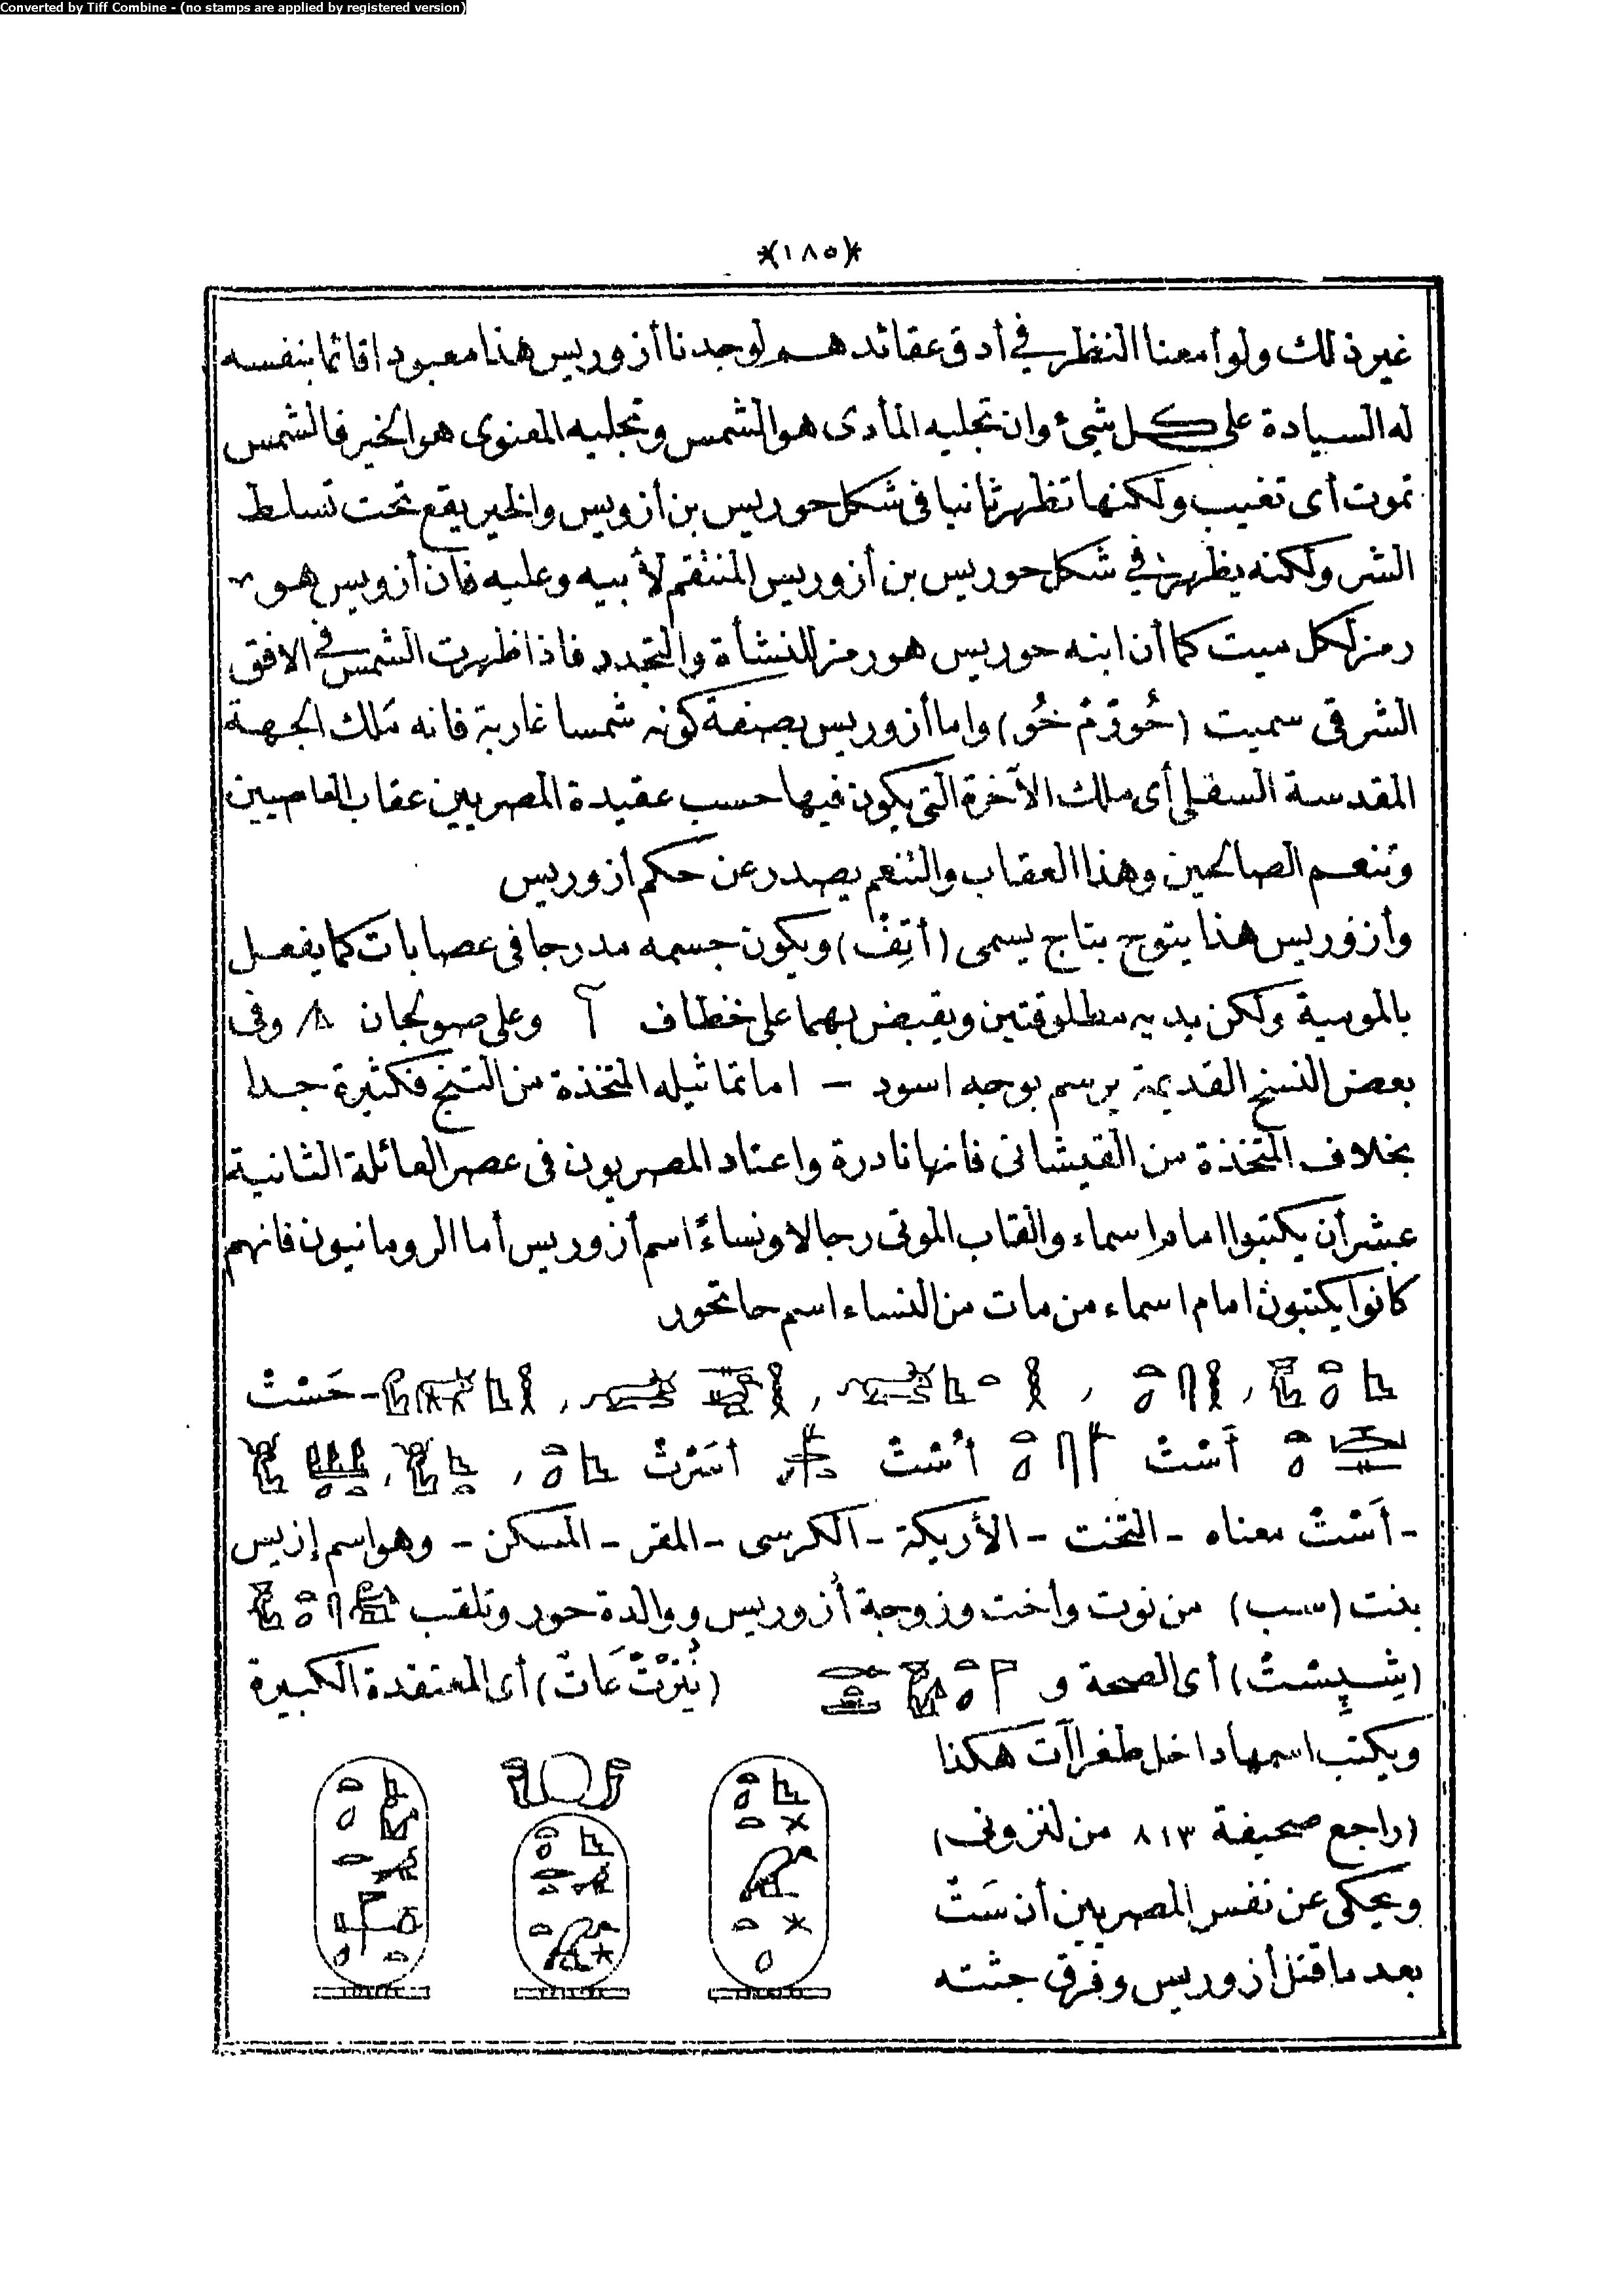 Converted by Tiff Combine - (no stamps are applied by registered version)
*(١٨٥)*
غير ذلك ولو أمعنا النظر في أدق عقائدهم لوجدنا أزوريس هذا معبودا قائما بنفسه
له السيادة على كل شيء وان تجليه المادى هو الشمس وتجليه المعنوى هو الخير فالشمس
تموت أى تغيب ولكنها تظهر ثانيا فى شكل حوريس بن أزوريس والخير يقع تحت تسلط
الشر ولكنه يظهر في شكل حوريس بن أزوريس المنتقم لأبيه وعليه فان أزوريس هو
رمز لكل ميت كما أن ابنه حوريس هو رمز للنشأة والتجدد فاذا ظهرت الشمس في الافق
الشرقى سميت (حُورْمْ خُو) واما أزوريس بصفة كونه شمسا غاربة فانه ملك الجهة
المقدسة السفلى أى ملك الآخرة التى يكون فيها حسب عقيدة المصريين عقاب العاصيين
وتنعم الصالحين وهذا العقاب والتنعم يصدر عن حكم أزوريس
وأزوريس هذا يتوج بتاج يسمى (أتِفْ) ويكون جسمه مدرجا فى عصابات كما يفعل
بالمومية ولكن يديه مطلوقتين ويقبض بهما على خطاف وعلى صولجان وفى
بعض النسخ القديمة يرسم بوجه اسود - اما تماثيله المتخذة من التنج فكثيرة جدا
بخلاف المتخذة من القيشانى فانها نادرة واعتاد المصريون فى عصر العائلة الثانية
عشر أن يكتبوا امام اسماء والقاب الموتى رجالا ونساءً اسم أزوريس أما الرومانيون فانهم
كانوا يكتبون امام اسماء من مات من النساء اسم حاتحور
- حَسْتْ
أَسْتْ أُسْتْ أسَرْتْ
- أَسْتْ معناه - التخت - الأريكة - الكرسى - المقر - المسكن - وهو اسم إزيس
بنت (سب) من نوت واخت وزوجة أزوريس ووالدة حور وتلقب
(شِپِسْتْ) أى الصحة و (نُتِرْتْ عَاتْ) أى المعتقدة الكبيرة
ويكتب اسمها داخل طغراآت هكذا
(راجع صحيفة ٨١٣ من لنزونى)
ويحكى عن نفس المصريين أن سَتْ
بعد ما قتل أزوريس وفرق جثته